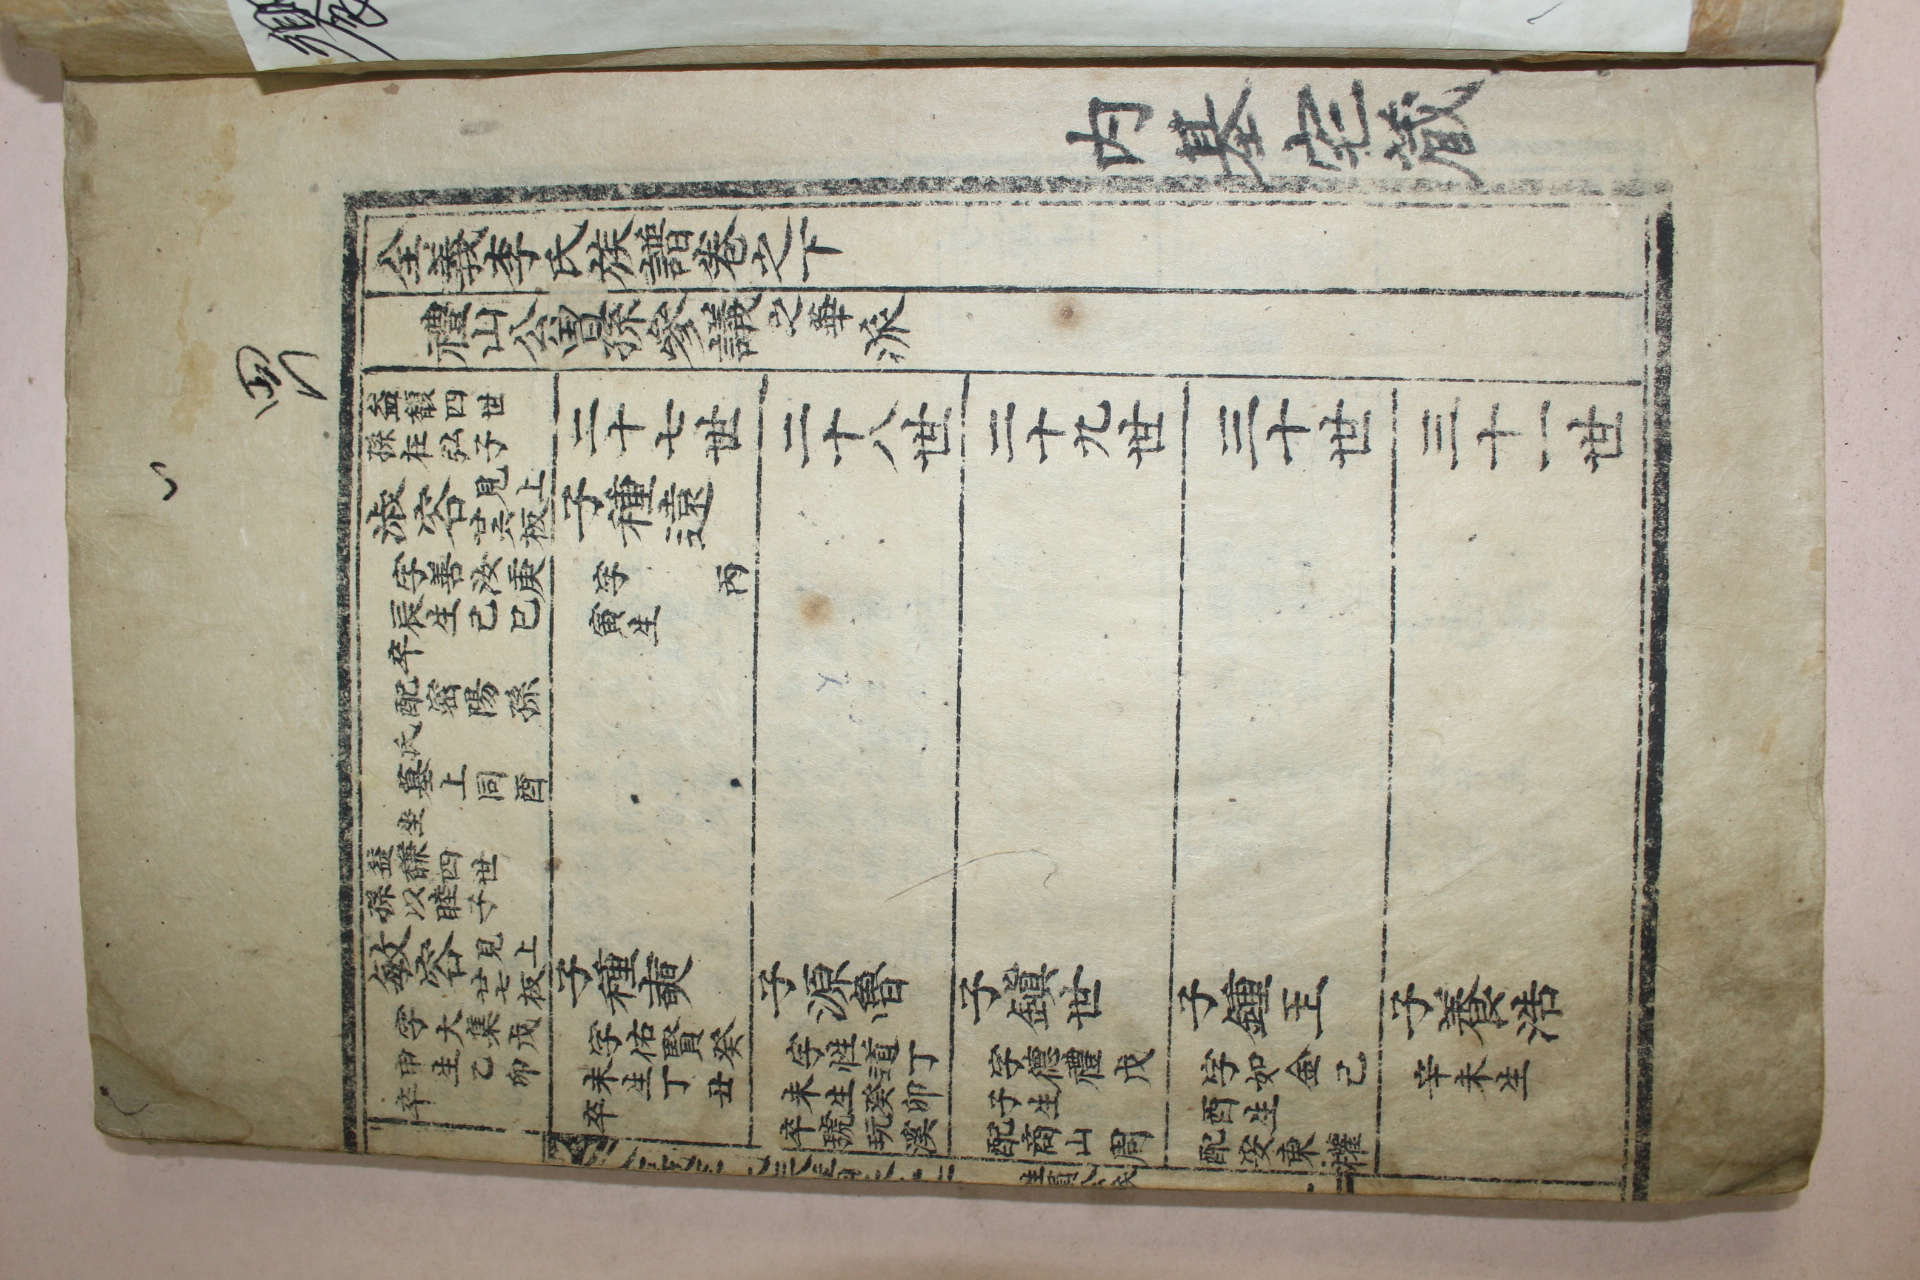 內基宅藏
全義李氏族譜卷之下
禮山公曾孫參議之華派
益馥四世
孫在弘子
淑容見上
廿六板
字善汝庚
辰生己巳
卒
配密陽孫
氏
墓上同酉
坐
益馦四世
孫以睦子
敏容見上
廿七板
字大集戊
申生乙卯
卒
二十七世
子種遠
字 丙
寅生
子種奭
字佑賢癸
未生丁丑
卒
二十八世
子源魯
字性道丁
未生癸卯
卒號玩溪
二十九世
子鎭世
字德禮戊
子生
配商山周
三十世
子鍾玉
字如金己
酉生
配安東權
三十一世
子養浩
辛未生